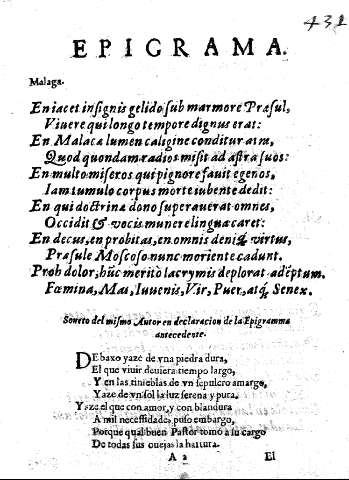 431
EPIGRAMA.
Malaga.
En iacet insignis gelido sub marmore Præsul,
Viuere qui longo tempore dignus erat:
En Malaca lumen caligine conditur atra,
Quod quondam radios misit ad astra suos:
En multo miseros qui pignore fauit egenos,
Iam tumulo corpus morte iubente dedit:
En qui doctrinæ dono superauerat omnes,
Occidit & vocis munere lingua caret:
En decus, en probitas, en omnis deniq; virtus,
Præsule Moscoso nunc moriente cadunt.
Proh dolor, hũc merito lacrymis deplorat adẽptum.
Fœmina, Mas, Iuuenis, Vir, Puer, atq; Senex.
Soneto del mismo Autor en declaracion de la Epigramma
antecedente.
DEbaxo yaze de vna piedra dura,
El que viuir deuiera tiempo largo,
Y en las tinieblas de vn sepulcro amargo,
Yaze de vn sol la luz serena y pura.
Yaze el que con amor, y con blandura
A mil necessidades puso embargo,
Porque qual buen Pastor tomò a su cargo
De todas sus ouejas la hartura.
A 2 El